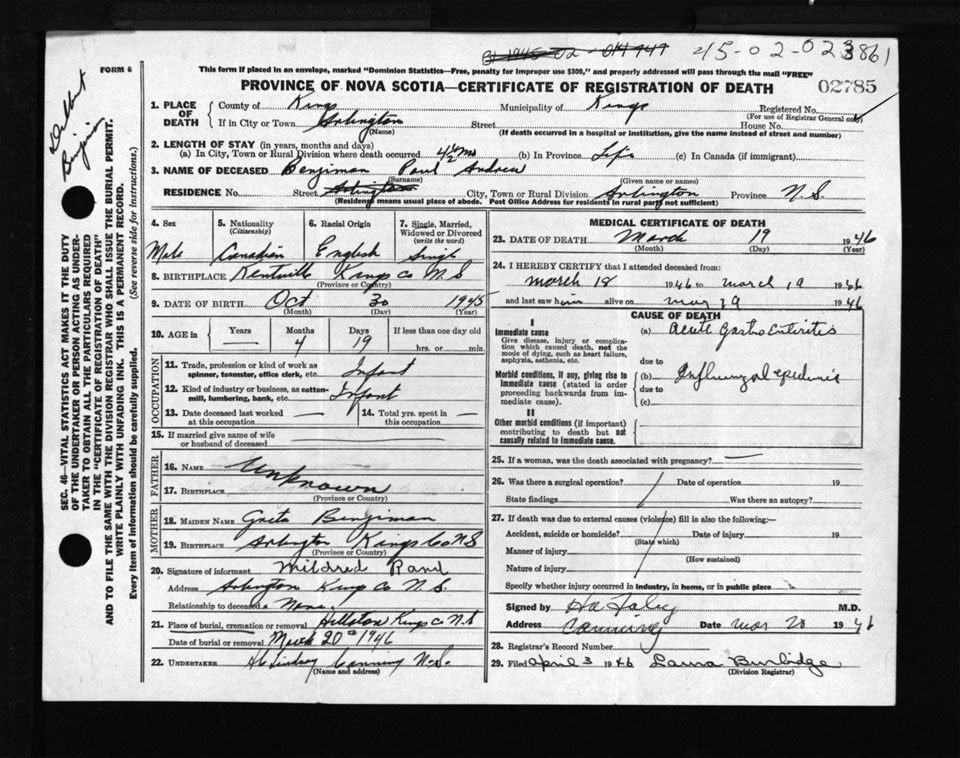 45-02-023861
FORM 6
This form if placed in an envelope, marked "Dominion Statistics—Free, penalty for improper use $300," and properly addressed will pass through the mail "FREE"
PROVINCE OF NOVA SCOTIA—CERTIFICATE OF REGISTRATION OF DEATH
02785
Benjimin
SEC. 46—VITAL STATISTICS ACT MAKES IT THE DUTY
OF THE UNDERTAKER OR PERSON ACTING AS UNDER-
TAKER TO OBTAIN ALL THE PARTICULARS REQUIRED
IN THE "CERTIFICATE OF REGISTRATION OF DEATH"
AND TO FILE THE SAME WITH THE DIVISION REGISTRAR WHO SHALL ISSUE THE BURIAL PERMIT.
WRITE PLAINLY WITH UNFADING INK. THIS IS A PERMANENT RECORD.
Every item of information should be carefully supplied. (See reverse side for instructions.)
1. PLACE OF DEATH
County of Kings Municipality of Kings Registered No.
(For use of Registrar General only)
If in City or Town Arlington Street House No.
(Name) (If death occurred in a hospital or institution, give the name instead of street and number)
2. LENGTH OF STAY (in years, months and days)
(a) In City, Town or Rural Division where death occurred 4½ ms (b) In Province Life (c) In Canada (if immigrant)
3. NAME OF DECEASED Benjiman Paul Andrew
(Surname) (Given name or names)
RESIDENCE No. Street Arlington City, Town or Rural Division Arlington Province N.S.
(Residence means usual place of abode. Post Office Address for residents in rural parts not sufficient)
4. Sex
Male
5. Nationality
(Citizenship)
Canadian
6. Racial Origin
English
7. Single, Married,
Widowed or Divorced
(write the word)
Single
8. BIRTHPLACE Kentville Kings Co N S
(Province or Country)
9. DATE OF BIRTH Oct 30 1945
(Month) (Day) (Year)
10. AGE in
Years Months Days If less than one day old
— 4 19 hrs. or min.
OCCUPATION
11. Trade, profession or kind of work as
spinner, teamster, office clerk, etc. Infant
12. Kind of industry or business, as cotton-
mill, lumbering, bank, etc. Infant
13. Date deceased last worked
at this occupation —
14. Total yrs. spent in
this occupation —
15. If married give name of wife
or husband of deceased
FATHER
16. NAME Unknown
17. BIRTHPLACE
(Province or Country)
MOTHER
18. MAIDEN NAME Greta Benjiman
19. BIRTHPLACE Arlington Kings Co N S
(Province or Country)
20. Signature of informant Mildred Rand
Address Arlington Kings Co N. S.
Relationship to deceased None
21. Place of burial, cremation or removal Hillston Kings Co N.S
Date of burial or removal March 20th 1946
22. UNDERTAKER Lindsay Canning N.S.
(Name and address)
MEDICAL CERTIFICATE OF DEATH
23. DATE OF DEATH March 19 1946
(Month) (Day) (Year)
24. I HEREBY CERTIFY that I attended deceased from:
march 18 1946 to march 19 1946
and last saw him alive on mar 19 1946
CAUSE OF DEATH
I
Immediate cause
Give disease, injury or complica-
tion which caused death, not the
mode of dying, such as heart failure,
asphyxia, asthenia, etc.
(a) Acute Gastro Enteritis
due to
Morbid conditions, if any, giving rise to
immediate cause (stated in order
proceeding backwards from im-
mediate cause).
(b) Influenzal epidemic
due to
(c)
II
Other morbid conditions (if important)
contributing to death but not
causally related to immediate cause.
25. If a woman, was the death associated with pregnancy? —
26. Was there a surgical operation? Date of operation 19
State findings Was there an autopsy?
27. If death was due to external causes (violence) fill in also the following:—
Accident, suicide or homicide? Date of injury 19
(State which)
Manner of injury
(How sustained)
Nature of injury
Specify whether injury occurred in industry, in home, or in public place
Signed by M.D.
Address Canning Date mar 20 1946
28. Registrar's Record Number
29. Filed April 3 1946 Laura Burbidge
(Division Registrar)